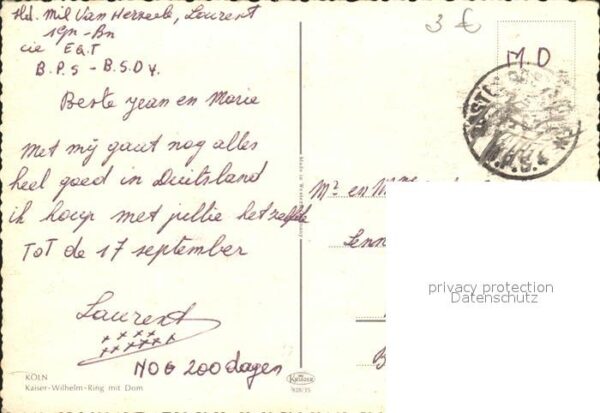 Md. Mil Van Herreele, Laurent
1gn-Bn
cie EGT
B.P.S - B.S.D 4.
Beste Jean en Marie
Met mij gaat nog alles
heel goed in Duitsland
ik hoop met jullie hetzelfde
TOT de 17 september
Laurent
xxxx
xxxxx
NOG 200 dagen
KÖLN
Kaiser-Wilhelm-Ring mit Dom
Made in Western Germany
Krüger
928/15
3 €
MD
B.P.S. 4
Mr en M
Lenn
B
privacy protection
Datenschutz